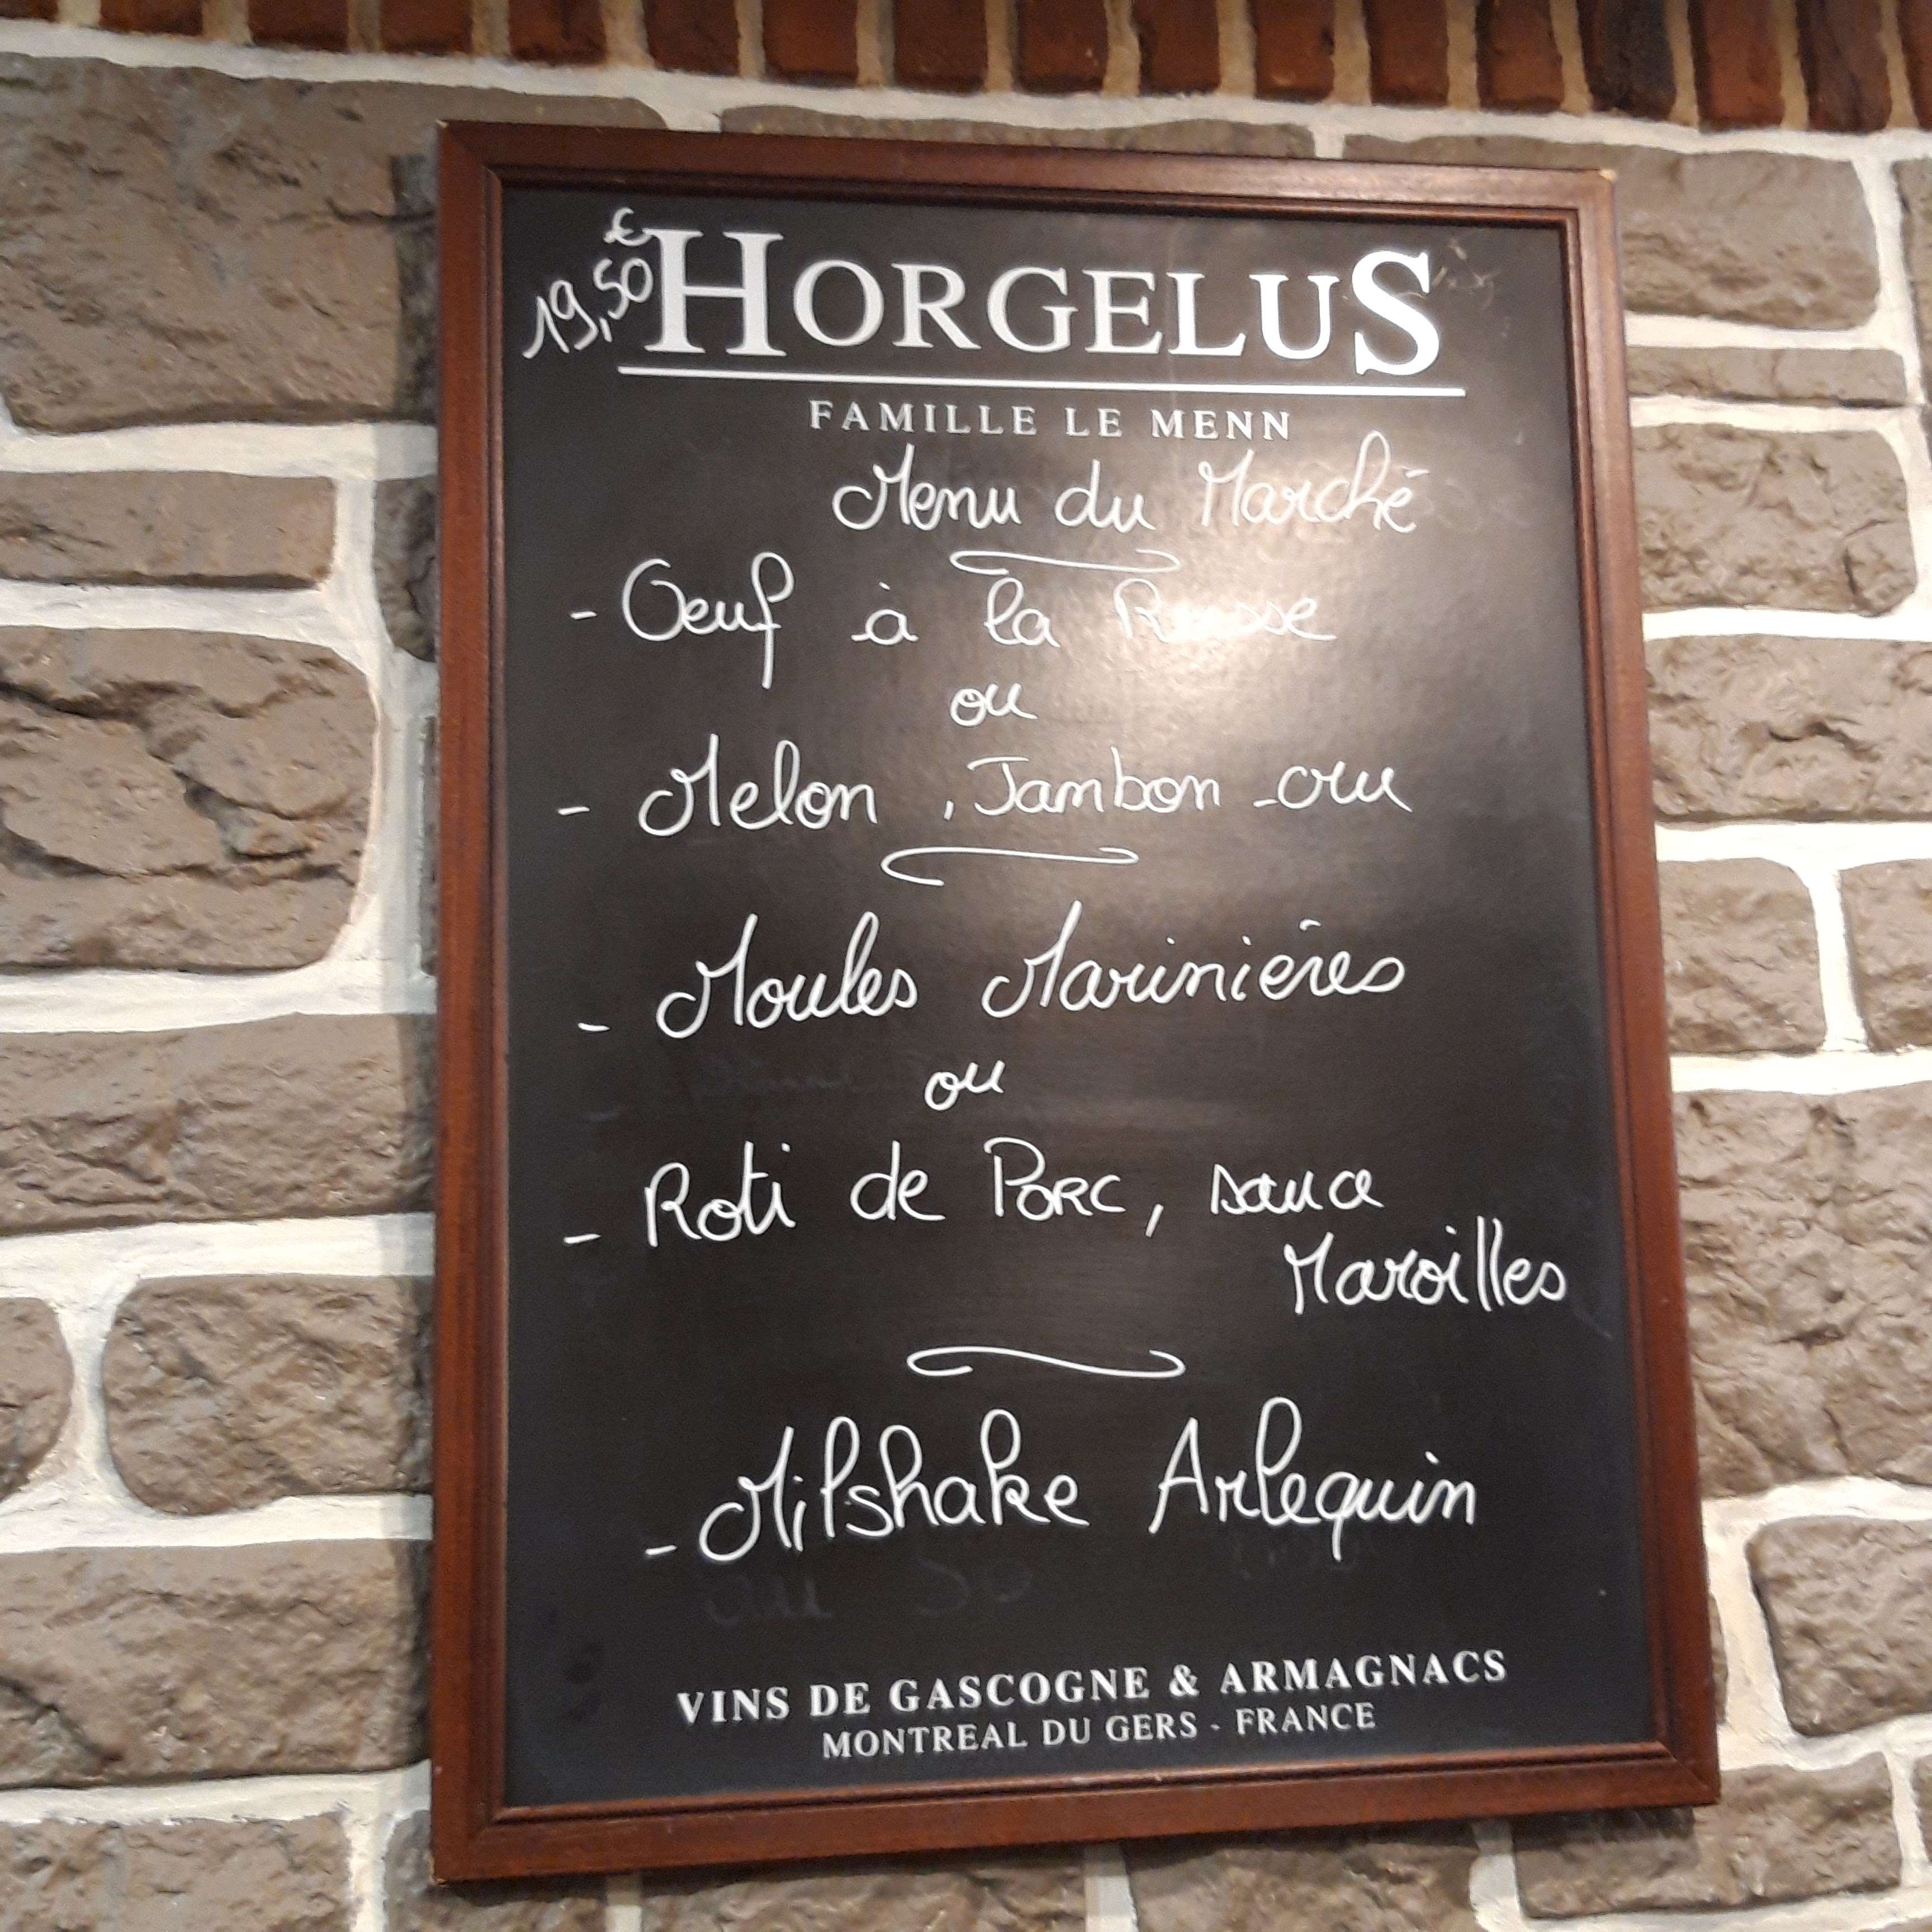 19,50€
HORGELUS
FAMILLE LE MENN
Menu du Marché
- Oeuf à la Russe
ou
- Melon, Jambon cru
- Moules Marinières
ou
- Roti de Porc, sauce
Maroilles
- Milshake Arlequin
VINS DE GASCOGNE & ARMAGNACS
MONTREAL DU GERS - FRANCE